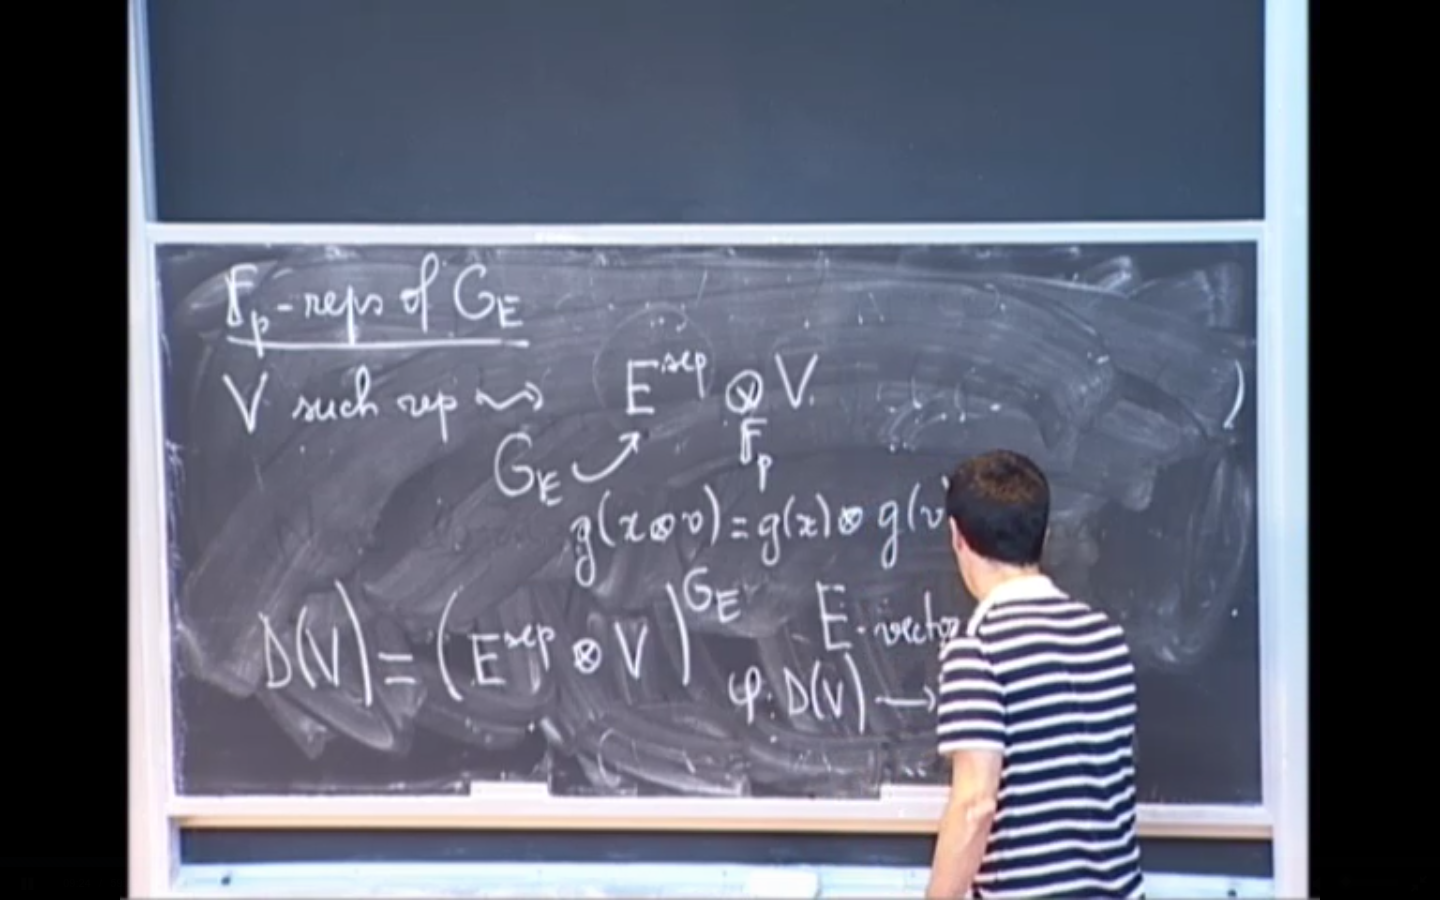 𝔽_p-reps of G_E
V such rep ⇝ E^sep ⊗_{𝔽_p} V.
)
G_E ↗
g(x⊗v) = g(x)⊗ g(v
D(V) = (E^sep ⊗ V)^{G_E} E-vecto
φ: D(V) →